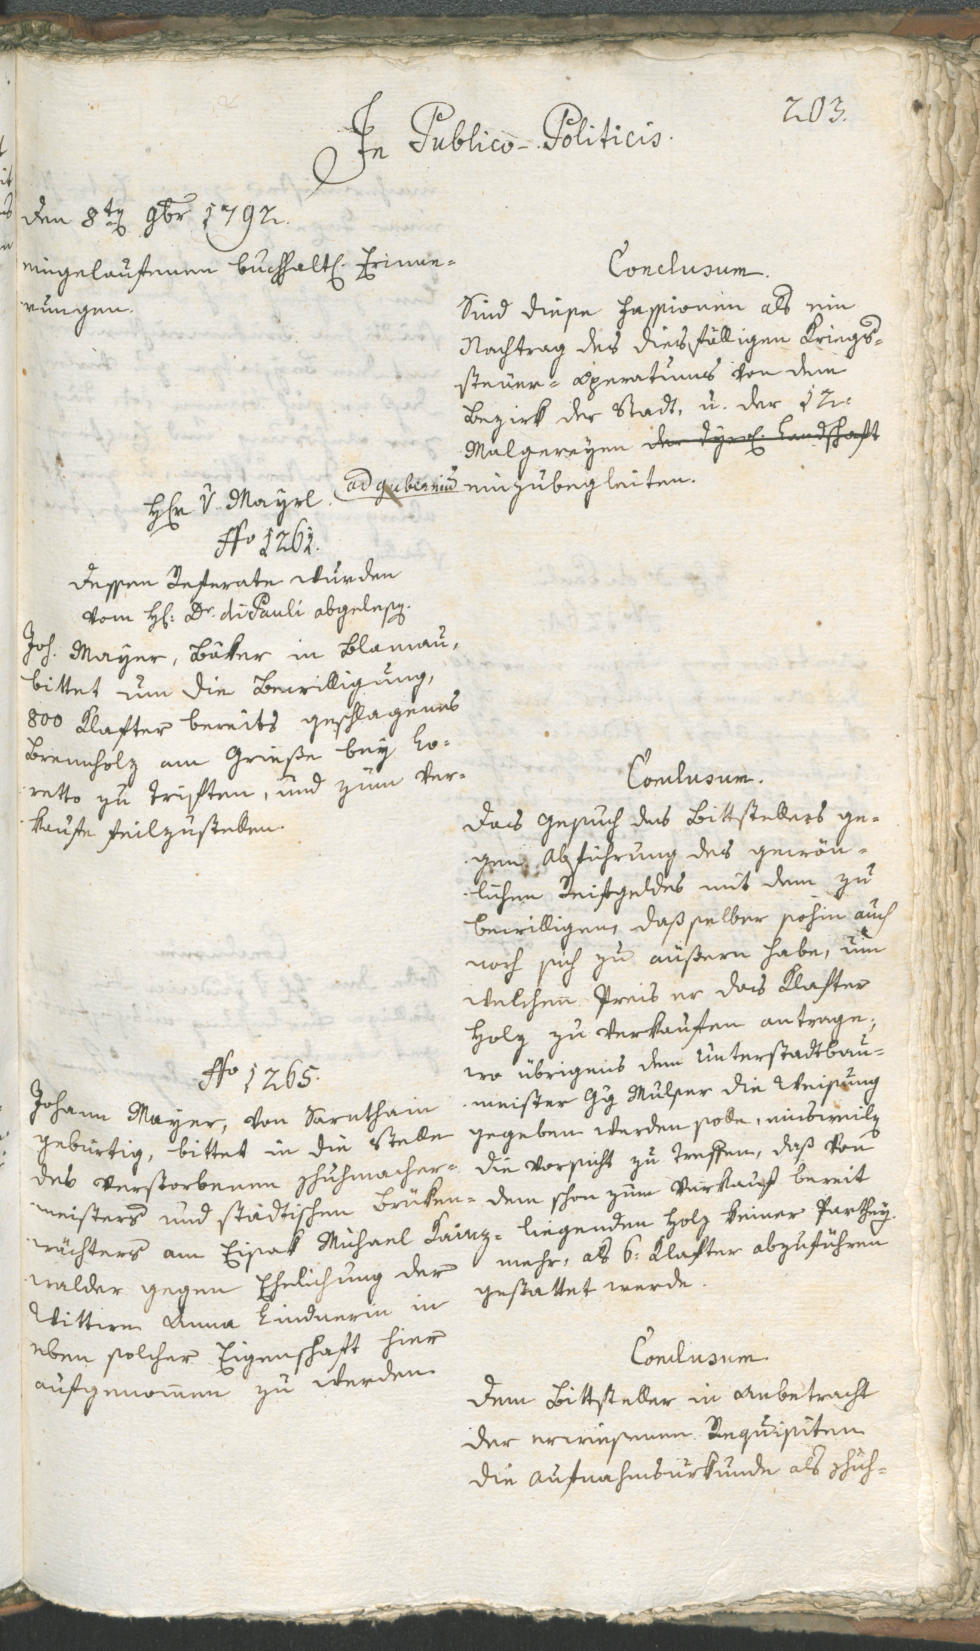 203.
In Publico-Politicis.
den 8ten 9br 1792.
eingelauffenen buchhalt. Erinne-
rungen.
Conclusum.
Sind diese Fassionen als ein
Nachtrag des diesfälligen Kriegs-
steuer-operatums von dem
Bezirk der Stadt, u. der 12
Malgereyen der Tyrol. Landschaft
ad gubernium einzubegleiten.
H. v. Mayrl.
No 1261.
dessen Referate wurden
vom H: Dr. di Pauli abgelesen.
Joh. Mayer, Bäker in Blamau,
bittet um die Bewilligung,
800 Klafter bereits geschlagenes
Brennholz am Grieße bey Lo-
retto zu triften, und zum Ver-
kaufe feilzustellen.
Conclusum.
Das Gesuch des Bittstellers ge-
gen Abführung des gewön-
lichen Reifgeldes mit dem zu
bewilligen, daß selber sohin auch
noch sich zu äußern habe, um
welchen Preis er das Klafter
Holz zu verkaufen antrage,
wo übrigens dem Unterstadtbau-
meister Gg Mulser die Weisung
gegeben werden solle, einsweilen
die Vorsicht zu treffen, daß von
dem schon zum Verkauf bereit
liegenden Holz keiner Parthey
mehr, als 6: Klafter abzuführen
gestattet werde.
No 1265.
Johann Mayer, von Sarnthain
gebürtig, bittet in die Stelle
des verstorbenen Schuhmacher-
meisters und städtischen Brüken-
wächters am Eisak Michael Kainz-
walder gegen Ehelichung der
Wittwe Anna Lindnerin in
eben solcher Eigenschaft hier
aufgenommen zu werden.
Conclusum.
Dem Bittsteller in Anbetracht
der erwiesenen Requisiten
die Aufnahmsurkunde als Schuh-